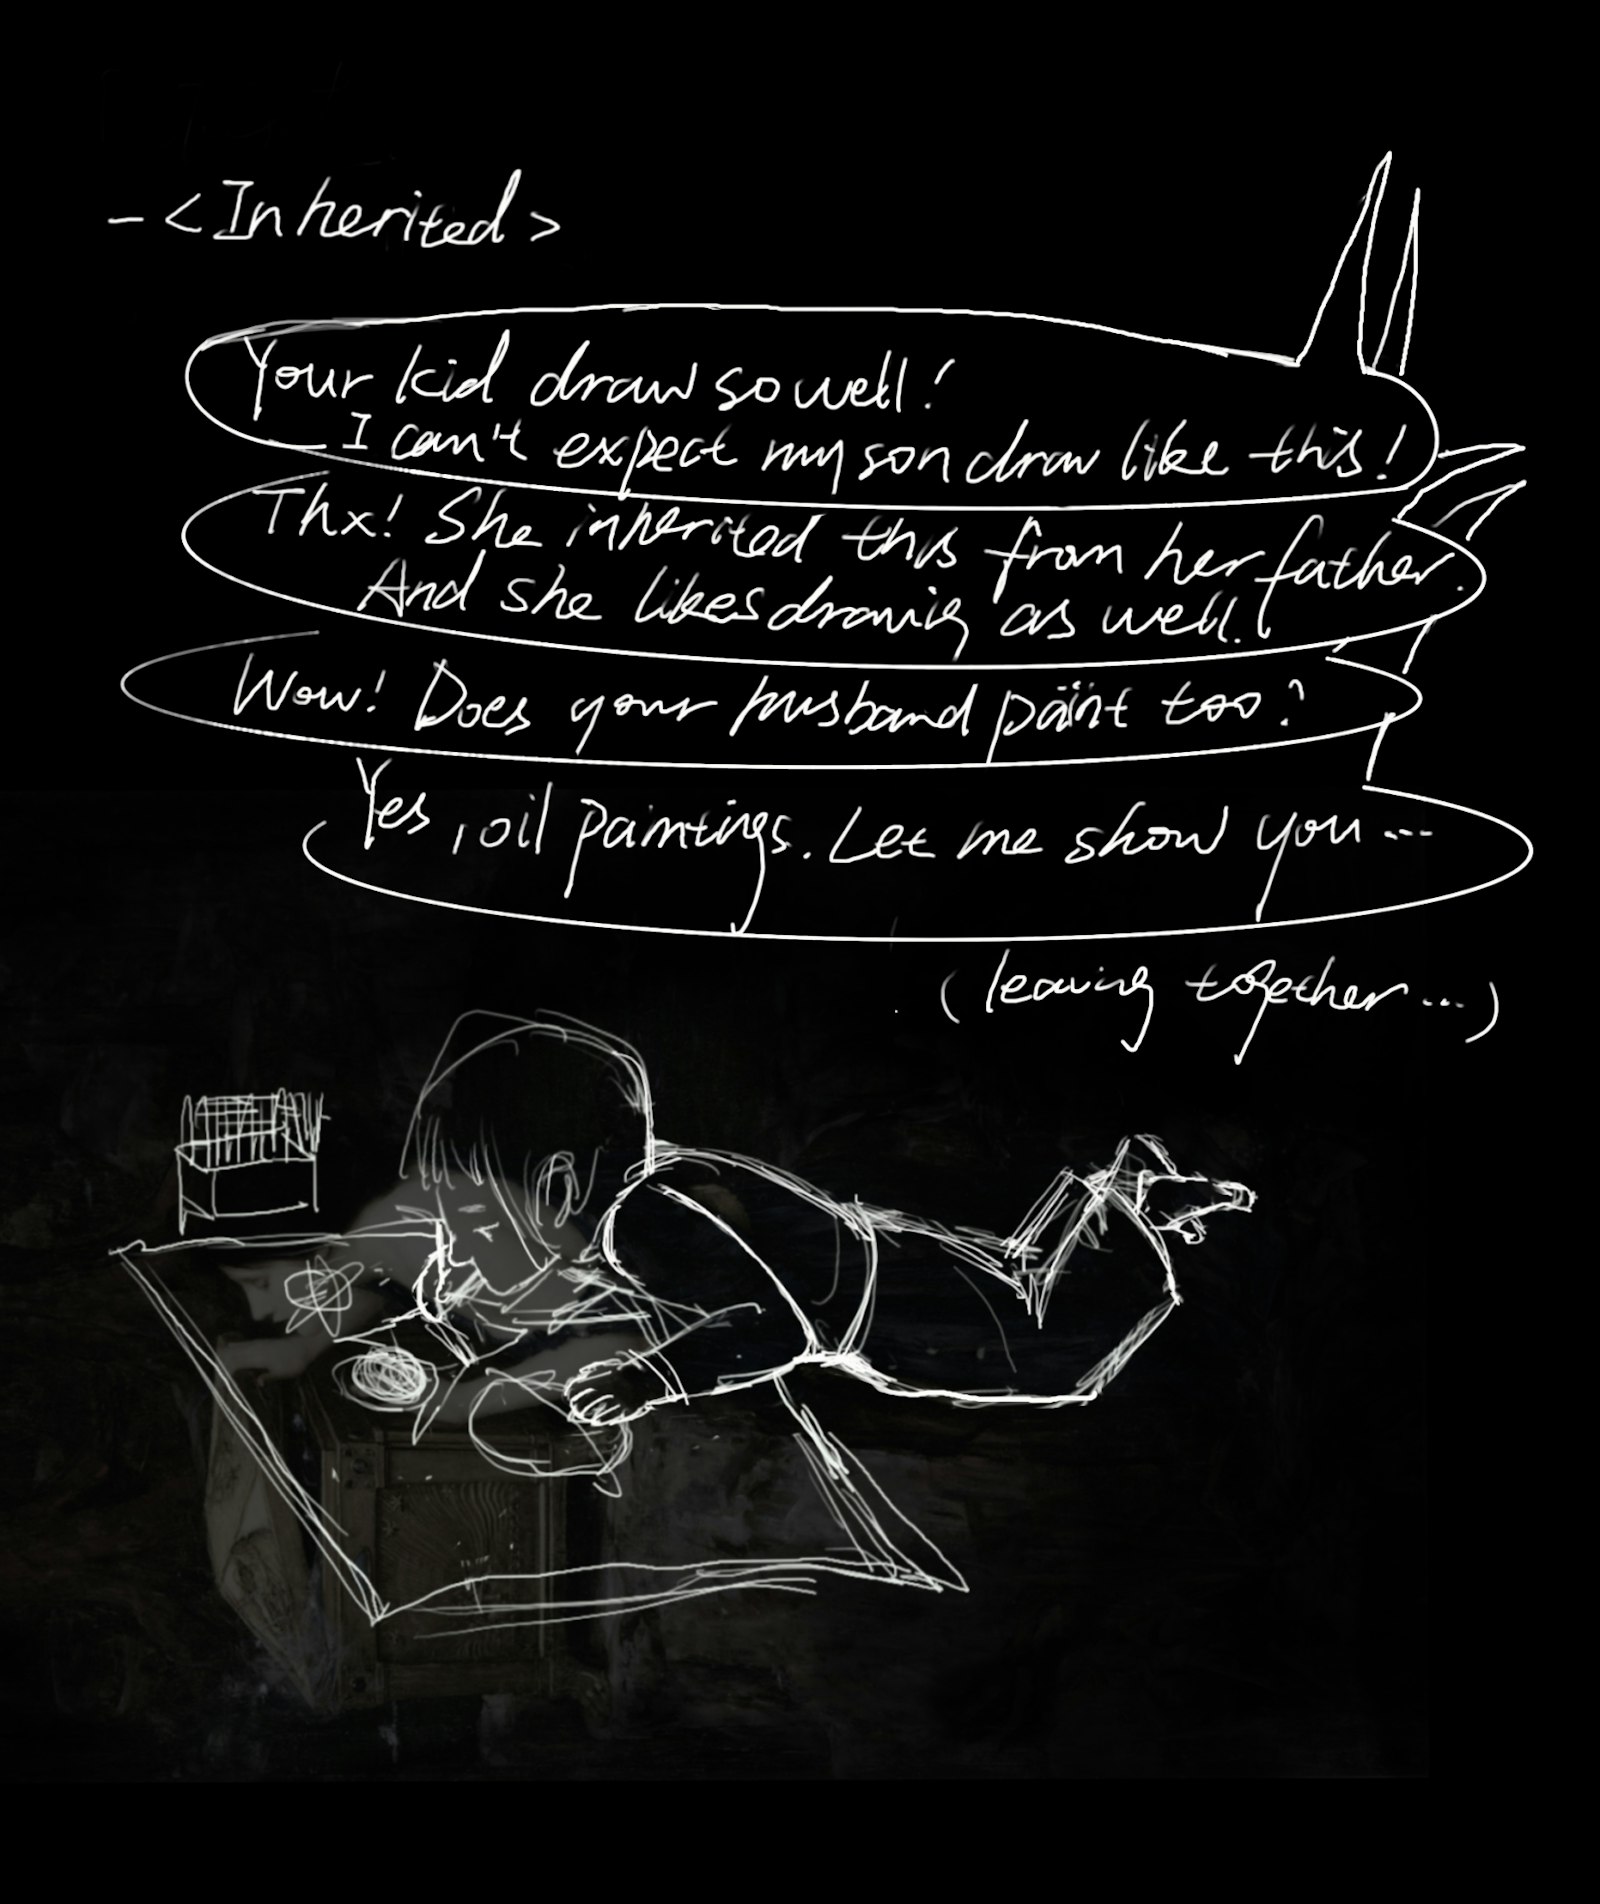 - <Inherited>
Your kid draw so well!
I can't expect my son draw like this!
Thx! She inherited this from her father.
And she likes drawing as well.
Wow! Does your husband paint too?
Yes, oil paintings. Let me show you ...
(leaving together ...)